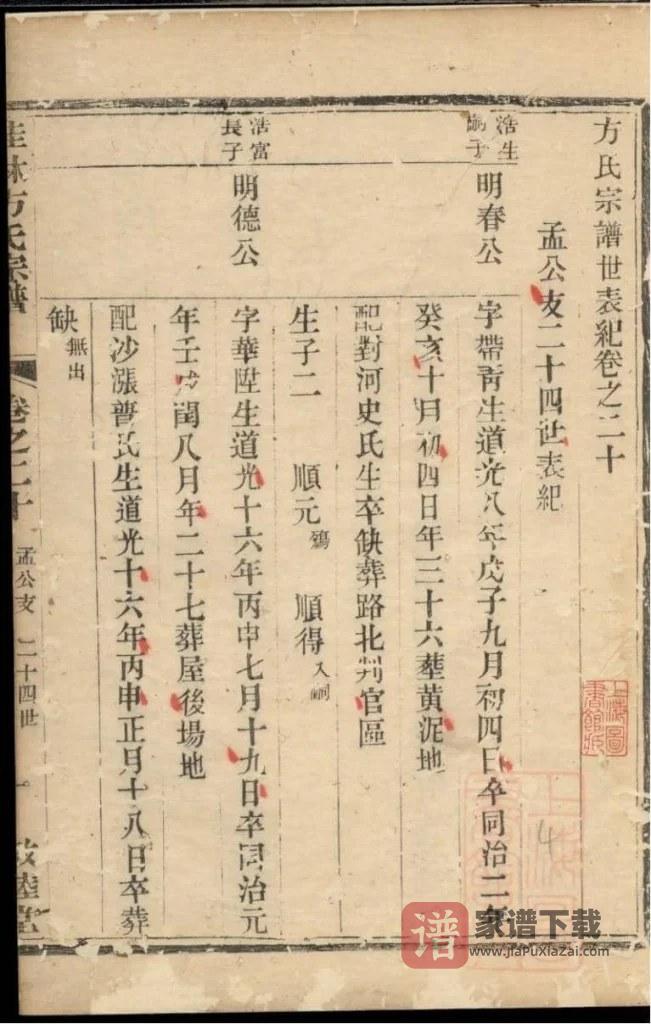 方氏宗譜世表紀卷之二十
孟公支二十四世表紀
浩生
嗣子
明春公
字帶青生道光八年戊子九月初四日卒同治二年
癸亥十月初四日年三十六葬黃泥地
配對河史氏生卒缺葬路北判官區
生子二 順元殤 順得入嗣
浩富
長子
明德公
字華陞生道光十六年丙申七月十九日卒同治元
年壬戌閏八月年二十七葬屋後場地
配沙漲曹氏生道光十六年丙申正月十八日卒葬
缺無出
桂林方氏宗譜 卷之二十 孟公支 二十四世 一 敦睦堂
上海圖書館藏
4
谱
家谱下载
www.jiaPuxiazai.com